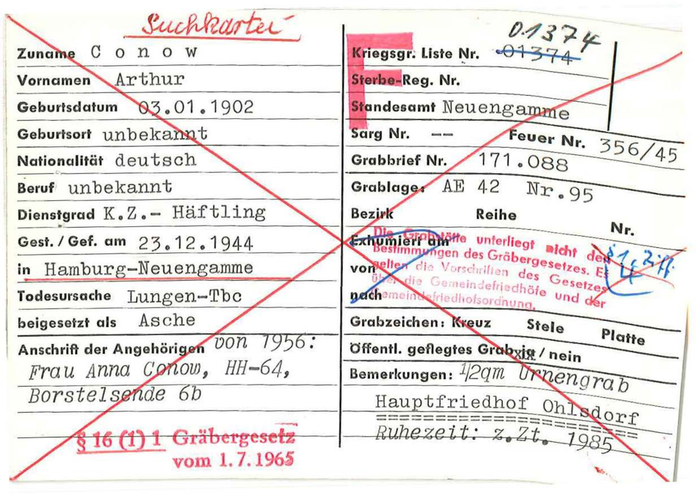 Suchkartei
Zuname Conow
Vornamen Arthur
Geburtsdatum 03.01.1902
Geburtsort unbekannt
Nationalität deutsch
Beruf unbekannt
Dienstgrad K.Z.- Häftling
Gest. / Gef. am 23.12.1944
in Hamburg-Neuengamme
Todesursache Lungen-Tbc
beigesetzt als Asche
Anschrift der Angehörigen von 1956:
Frau Anna Conow, HH-64,
Borstelsende 6b
§ 16 (1) 1 Gräbergesetz
vom 1.7.1965
0.1374
Kriegsgr. Liste Nr. 01374
Sterbe-Reg. Nr.
Standesamt Neuengamme
Sarg Nr. -- Feuer Nr. 356/45
Grabbrief Nr. 171.088
Grablage: AE 42 Nr.95
Bezirk Reihe Nr.
Exhumiert am
von
nach
Die Grabstätte unterliegt nicht den
Bestimmungen des Gräbergesetzes. Es
gelten die Vorschriften des Gesetzes
über die Gemeindefriedhöfe und der
Gemeindefriedhofsordnung.
§ 1, Ziff
4
Grabzeichen: Kreuz Stele Platte
Öffentl. gepflegtes Grab / nein
Bemerkungen: 1/2qm Urnengrab
Hauptfriedhof Ohlsdorf
Ruhezeit: z.Zt. 1985